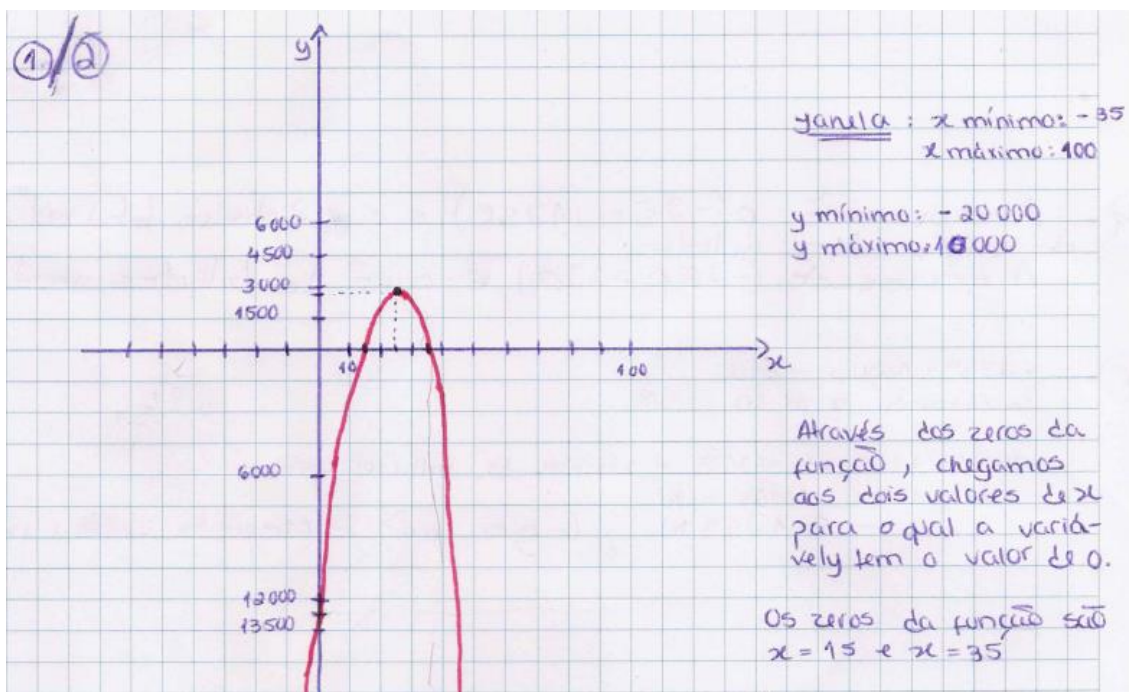 1/2
y
6000
4500
3000
1500
10
100
x
6000
12000
13500
Janela : x mínimo: - 35
x máximo: 100
y mínimo: - 20 000
y máximo: 10 000
Através dos zeros da
função, chegamos
aos dois valores de x
para o qual a variá-
vel y tem o valor de 0.
Os zeros da função são
x = 15 e x = 35